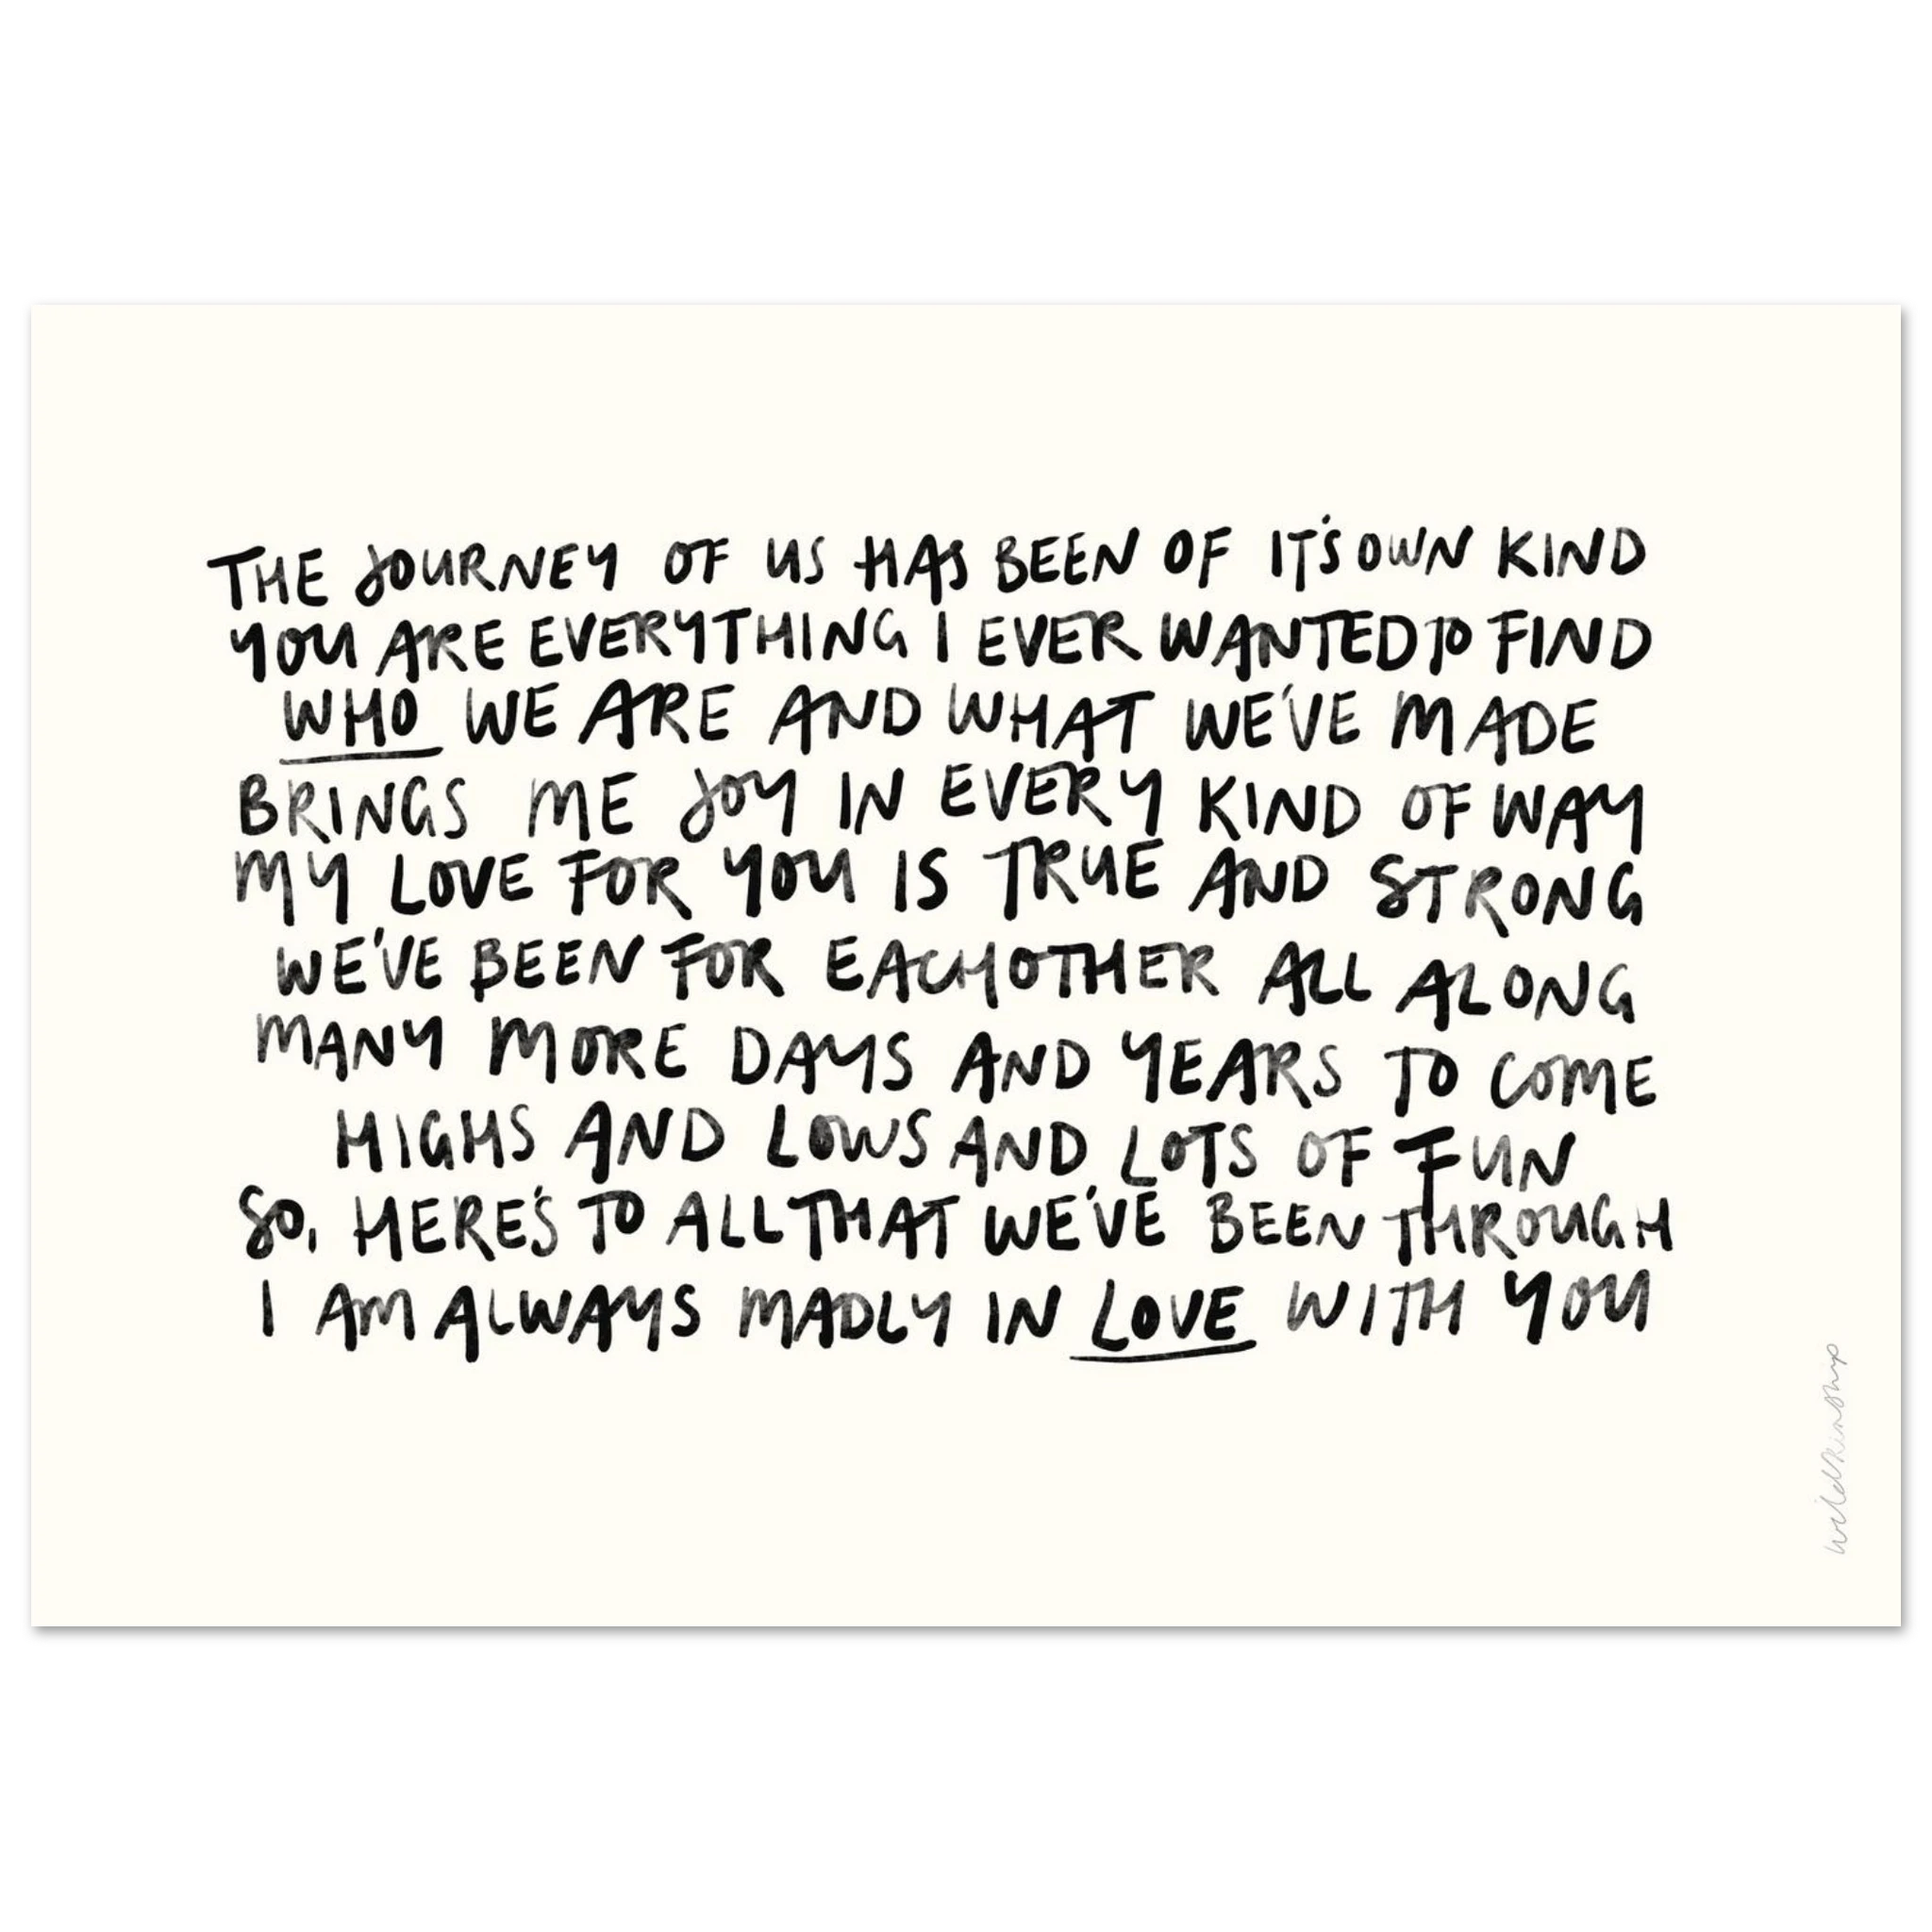 THE JOURNEY OF US HAS BEEN OF IT'S OWN KIND
YOU ARE EVERYTHING I EVER WANTED TO FIND
WHO WE ARE AND WHAT WE'VE MADE
BRINGS ME JOY IN EVERY KIND OF WAY
MY LOVE FOR YOU IS TRUE AND STRONG
WE'VE BEEN FOR EACHOTHER ALL ALONG
MANY MORE DAYS AND YEARS TO COME
HIGHS AND LOWS AND LOTS OF FUN
SO, HERE'S TO ALL THAT WE'VE BEEN THROUGH
I AM ALWAYS MADLY IN LOVE WITH YOU